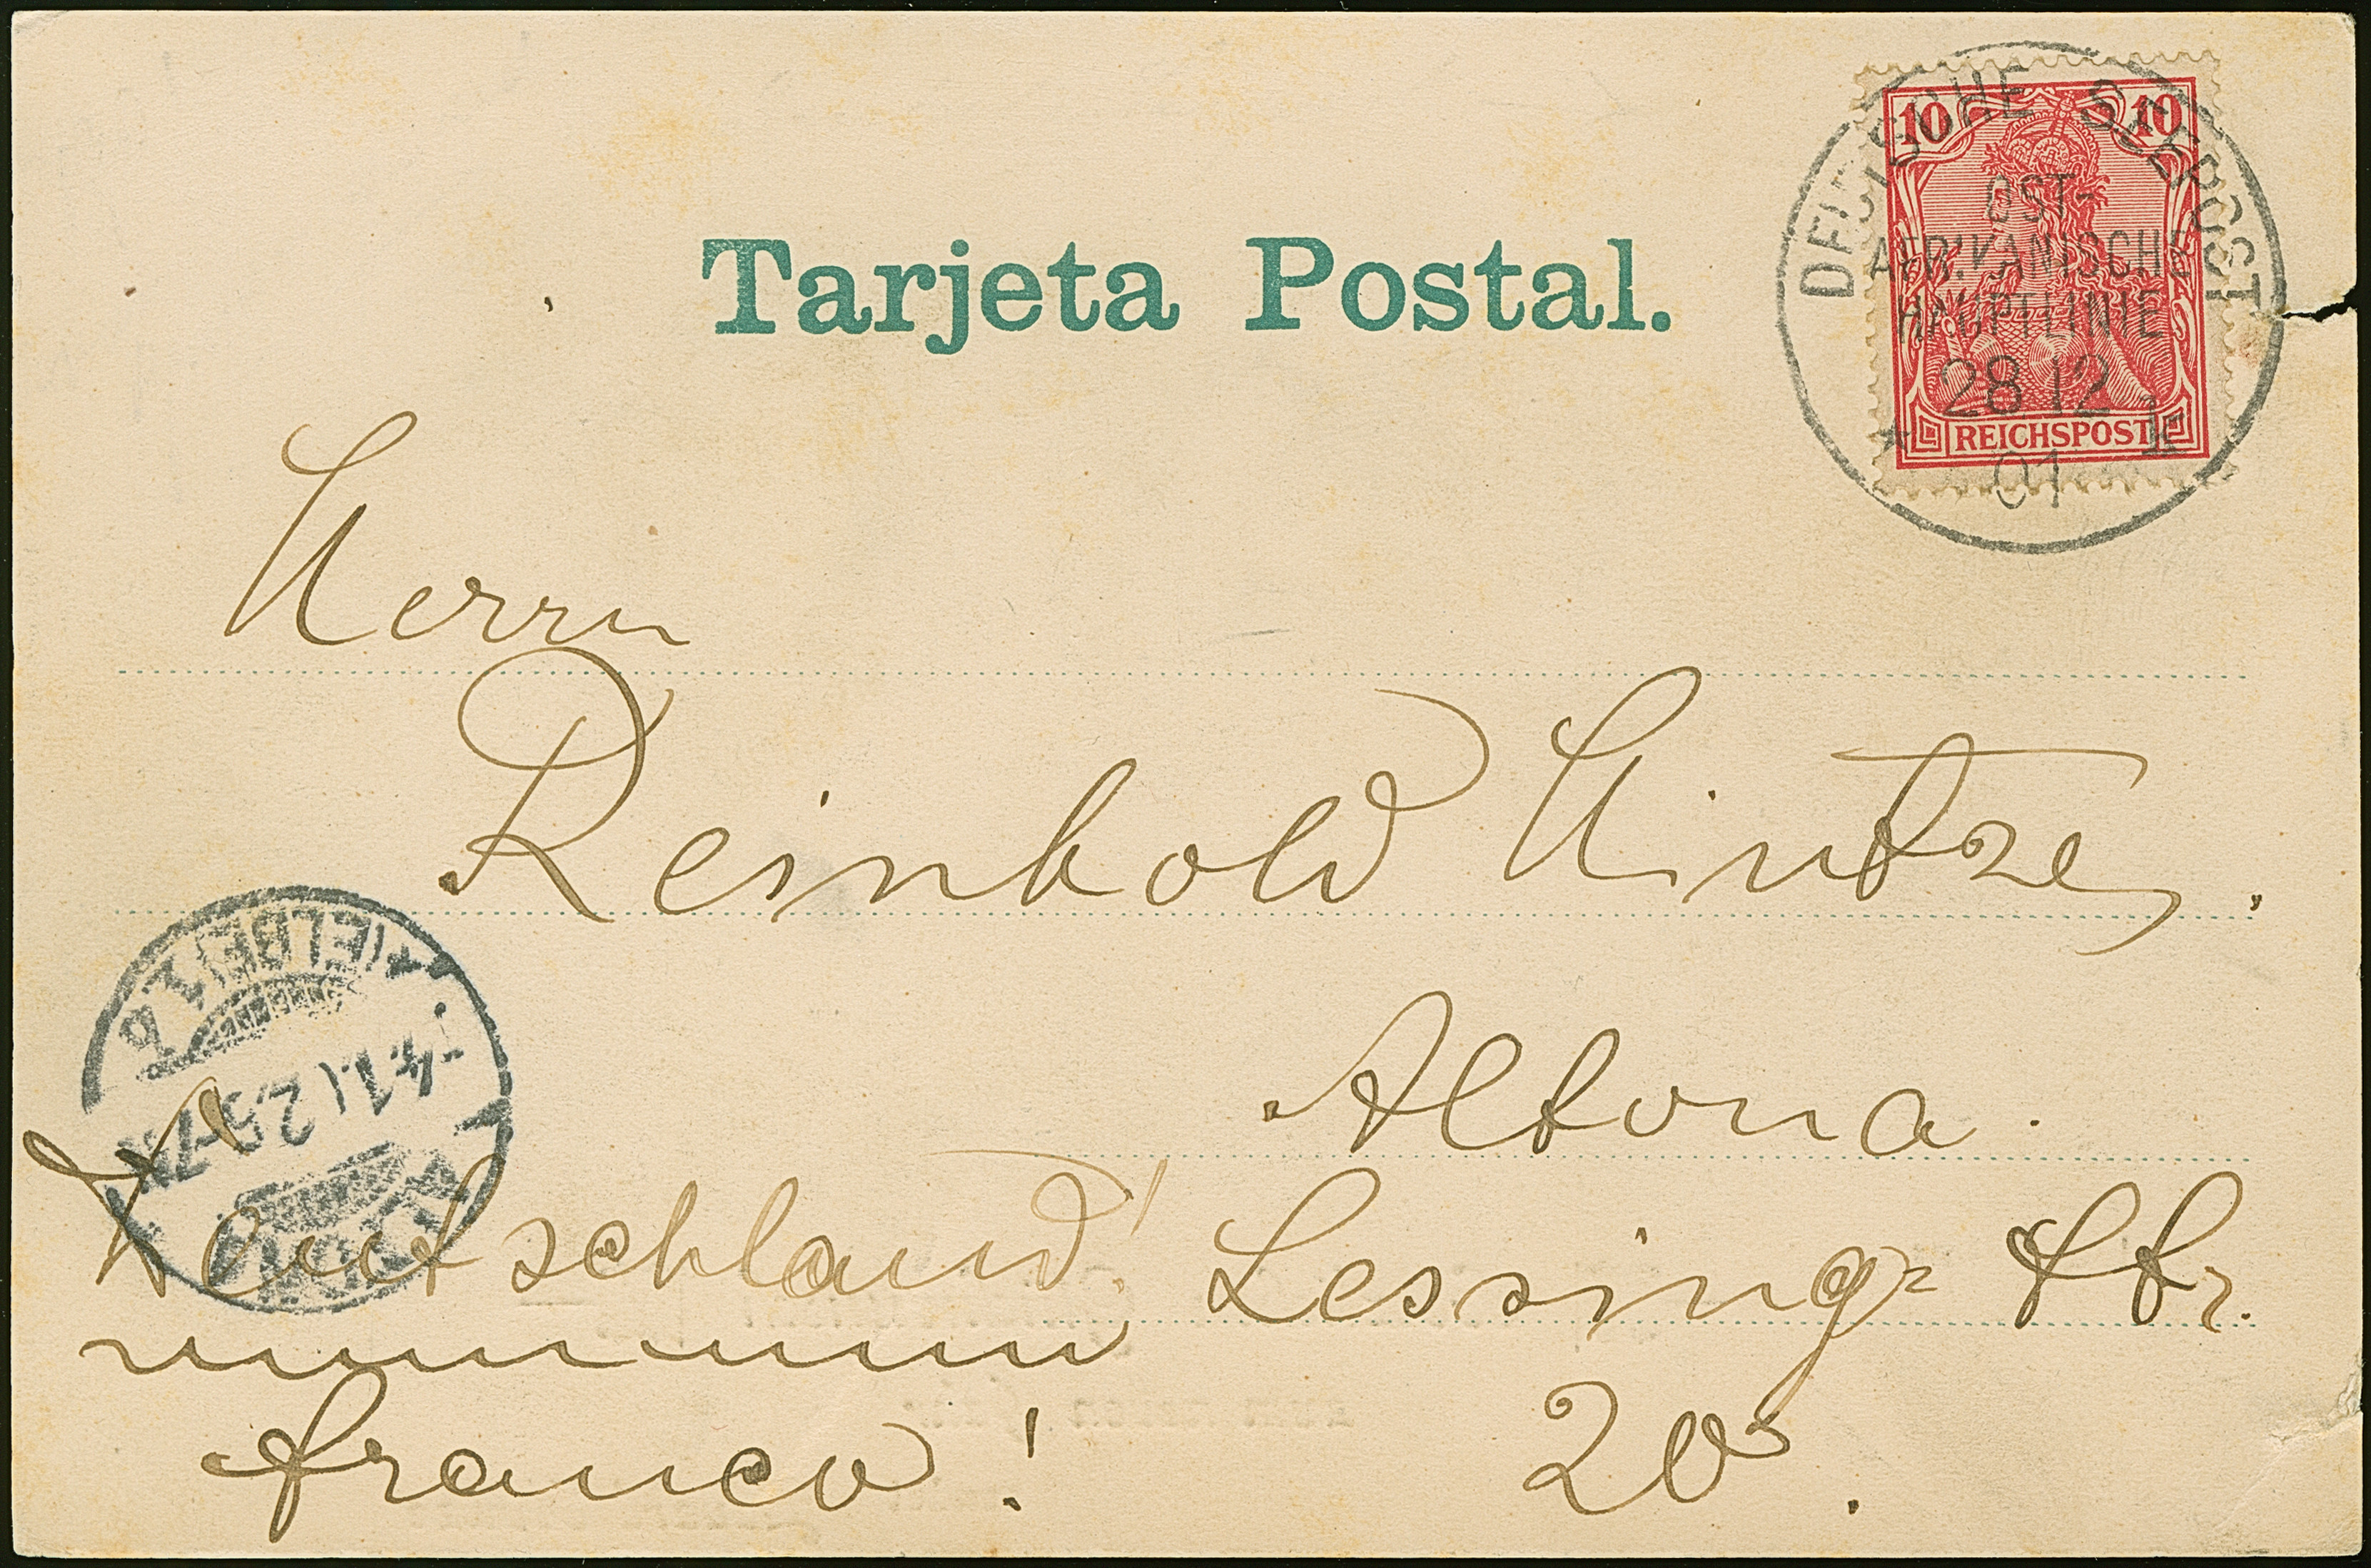 Tarjeta Postal.
10 10
REICHSPOST
DEUTSCHE SEEPOST
OST-
AFRIKANISCHE
HAUPTLINIE
28 12
01
k
Herrn
Reinhold Hintze,
Altona.
Lessing=Str.
20.
Deutschland!
franco!
ALTONA
4.1.02.6-7N
*(ELBE)1b